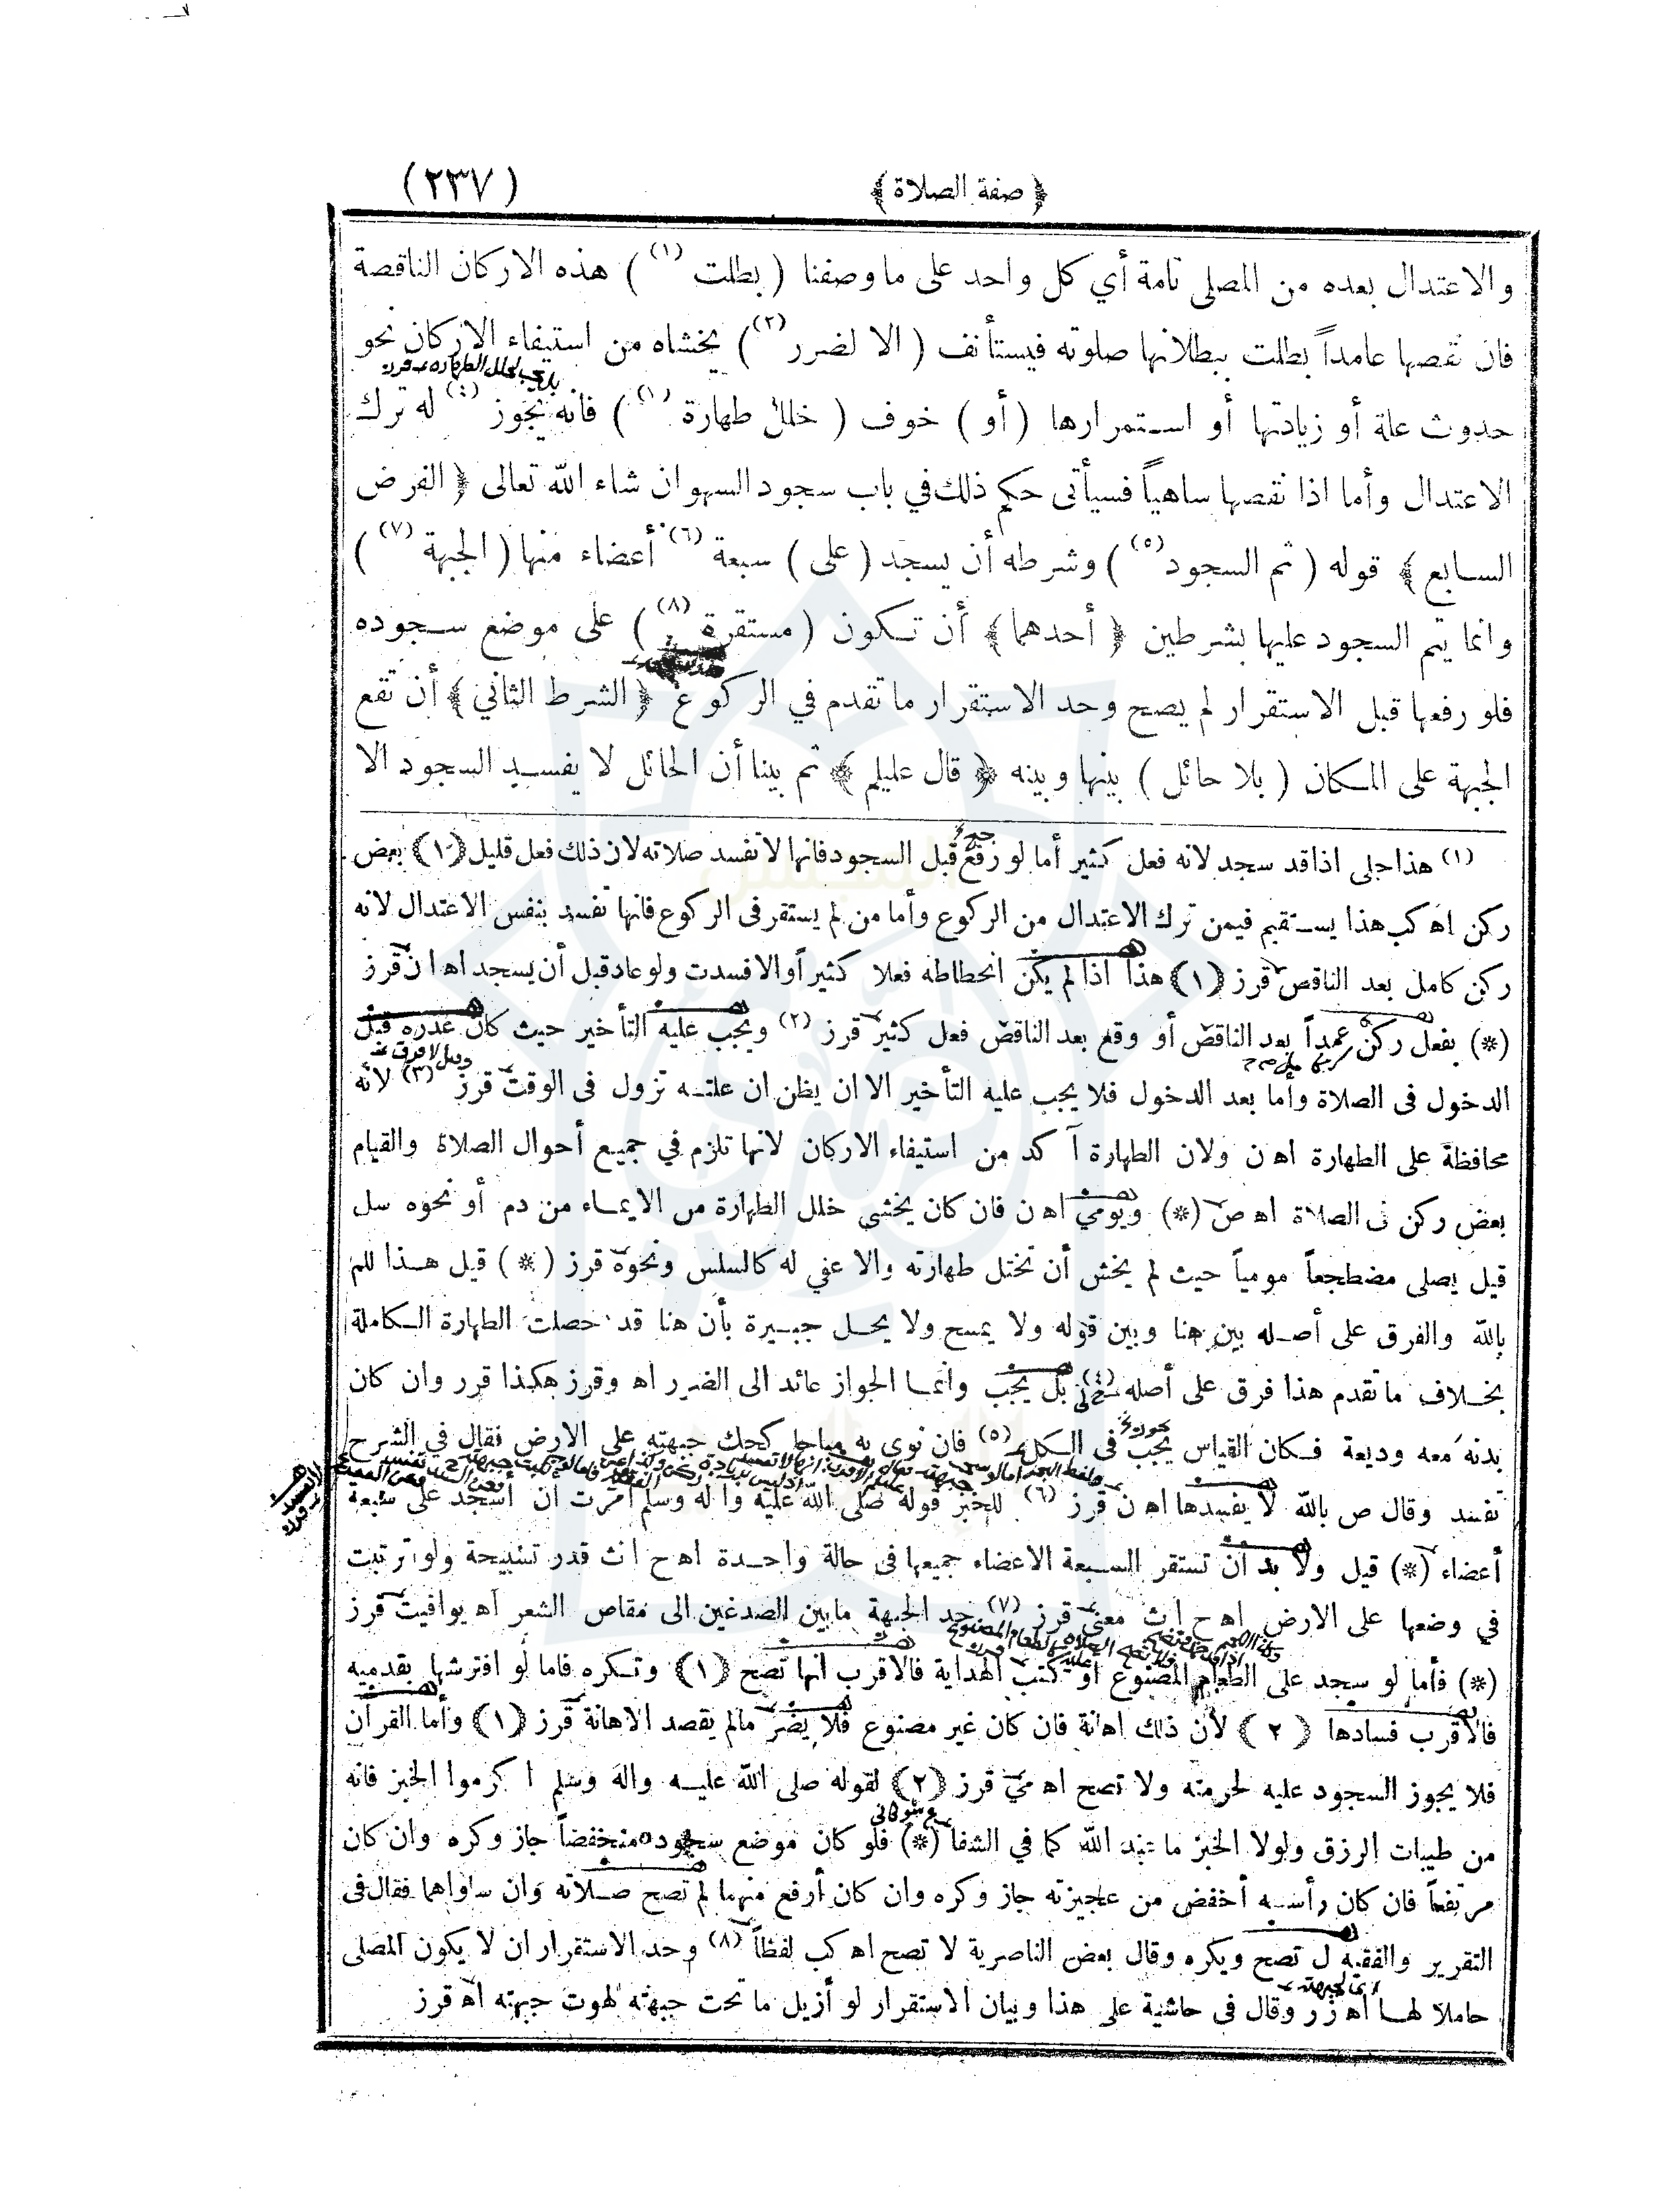 ﴿ صفة الصلاة ﴾ (٢٣٧)
والاعتدال بعده من المصلى تامة أي كل واحد على ما وصفنا ( بطلت (١) ) هذه الاركان الناقصة
فان نقصها عامداً بطلت ببطلانها صلوته فيستأنف ( الا لضرر (٢) ) يخشاه من استيفاء الاركان نحو
حدوث علة أو زيادتها أو استمرارها ( أو ) خوف ( خلل طهارة ) فانه يجوز (٤) له ترك
الاعتدال وأما اذا نقصها ساهياً فسيأتى حكم ذلك في باب سجود السهو ان شاء الله تعالى ﴿ الفرض
السابع ﴾ قوله ( ثم السجود (٥) ) وشرطه أن يسجد ( على ) سبعة (٦) أعضاء منها ( الجبهة (٧) )
وانما يتم السجود عليها بشرطين ﴿ أحدهما ﴾ أن تكون ( مستقرة (٨) ) على موضع سجوده
فلو رفعها قبل الاستقرار لم يصح وحد الاستقرار ما تقدم في الركوع ﴿ الشرط الثاني ﴾ أن تقع
الجبهة على المكان ( بلا حائل ) بينها وبينه ﴿ قال عليلم ﴾ ثم بينا أن الحائل لا يفسد السجود الا
(١) هذا جلى اذا قد سجد لانه فعل كثير أما لو رفع قبل السجود فانها لا تفسد صلاته لان ذلك فعل قليل (١) بعض
ركن اه كب هذا يستقيم فيمن ترك الاعتدال من الركوع وأما من لم يستقر فى الركوع فانها تفسد بنفس الاعتدال لانه
ركن كامل بعد الناقص قرز (١) هذا اذا لم يكن انحطاطه فعلا كثيراً والا فسدت ولو عاد قبل أن يسجد اه ان قرز
(*) بفعل ركن عمداً بعد الناقص أو وقع بعد الناقص فعل كثير قرز (٢) ويجب عليه التأخير حيث كان عذره قبل
الدخول فى الصلاة وأما بعد الدخول فلا يجب عليه التأخير الا ان يظن ان علته تزول فى الوقت قرز (٣) لانه
محافظة على الطهارة اه ن ولان الطهارة آكد من استيفاء الاركان لانها تلزم في جميع أحوال الصلاة والقيام
بعض ركن فى الصلاة اه ص (*) ويومي اه ن فان كان يخشى خلل الطهارة من الايماء من دم أو نحوه سل
قيل يصلى مضطجعاً مومياً حيث لم يخش أن تختل طهارته والا عفي له كالسلس ونحوه قرز (*) قيل هذا للم
بالله والفرق على أصله بين هنا وبين قوله ولا يمسح ولا يحل جبيرة بأن هنا قد حصلت الطهارة الكاملة
بخلاف ما تقدم هذا فرق على أصله (٤) بل يجب وانما الجواز عائد الى الضرر اه وقرز هكذا قرر وان كان
بدنه معه وديعة فكان القياس يجب فى الكل (٥) فان نوى به مباحا كحك جبهته على الارض فقال في الشرح
تفسد وقال ص بالله لا يفسدها اه ن قرز (٦) للخبر قوله صلى الله عليه وآله وسلم أمرت ان أسجد على سبعة
أعضاء (*) قيل ولا بد ان تستقر السبعة الاعضاء جميعها فى حالة واحدة اه ح اث قدر تسبيحة ولو ترتبت
في وضعها على الارض اه ح اث معنى قرز (٧) حد الجبهة مابين الصدغين الى مقاص الشعر اه يواقيت قرز
(*) فأما لو سجد على الطعام المصنوع أو كتب الهداية فالاقرب انها تصح (١) وتكره فاما لو افترشها بقدميه
فالاقرب فسادها (٢) لأن ذلك اهانة فان كان غير مصنوع فلا يضر مالم يقصد الاهانة قرز (١) وأما القرآن
فلا يجوز السجود عليه لحرمته ولا تصح اه مي قرز (٢) لقوله صلى الله عليه وآله وسلم اكرموا الخبز فانه
من طيبات الرزق ولولا الخبز ما عبد الله كما في الشفا (*) فلو كان موضع سجوده منخفضاً جاز وكره وان كان
مرتفعاً فان كان رأسه أخفض من عجيزته جاز وكره وان كان أرفع منهما لم تصح صلاته وان ساواهما فقال فى
التقرير والفقيه ل تصح ويكره وقال بعض الناصرية لا تصح اه كب لفظاً (٨) وحد الاستقرار ان لا يكون المصلى
حاملا لها اه زر وقال فى حاشية على هذا وبيان الاستقرار لو أزيل ما تحت جبهته لهوت جبهته اه قرز